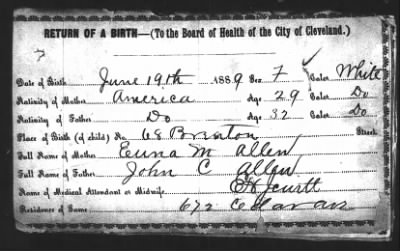 RETURN OF A BIRTH—(To the Board of Health of the City of Cleveland.)
Date of Birth June 19th 1889 Sex F Color White
Nativity of Mother America Age 29 Color Do
Nativity of Father Do Age 32 Color Do
Place of Birth (of child) No. 68 Brinton Street
Full Name of Mother Emma M Allen
Full Name of Father John C Allen
Name of Medical Attendant or Midwife,
Residence of Same 672 Cedar av